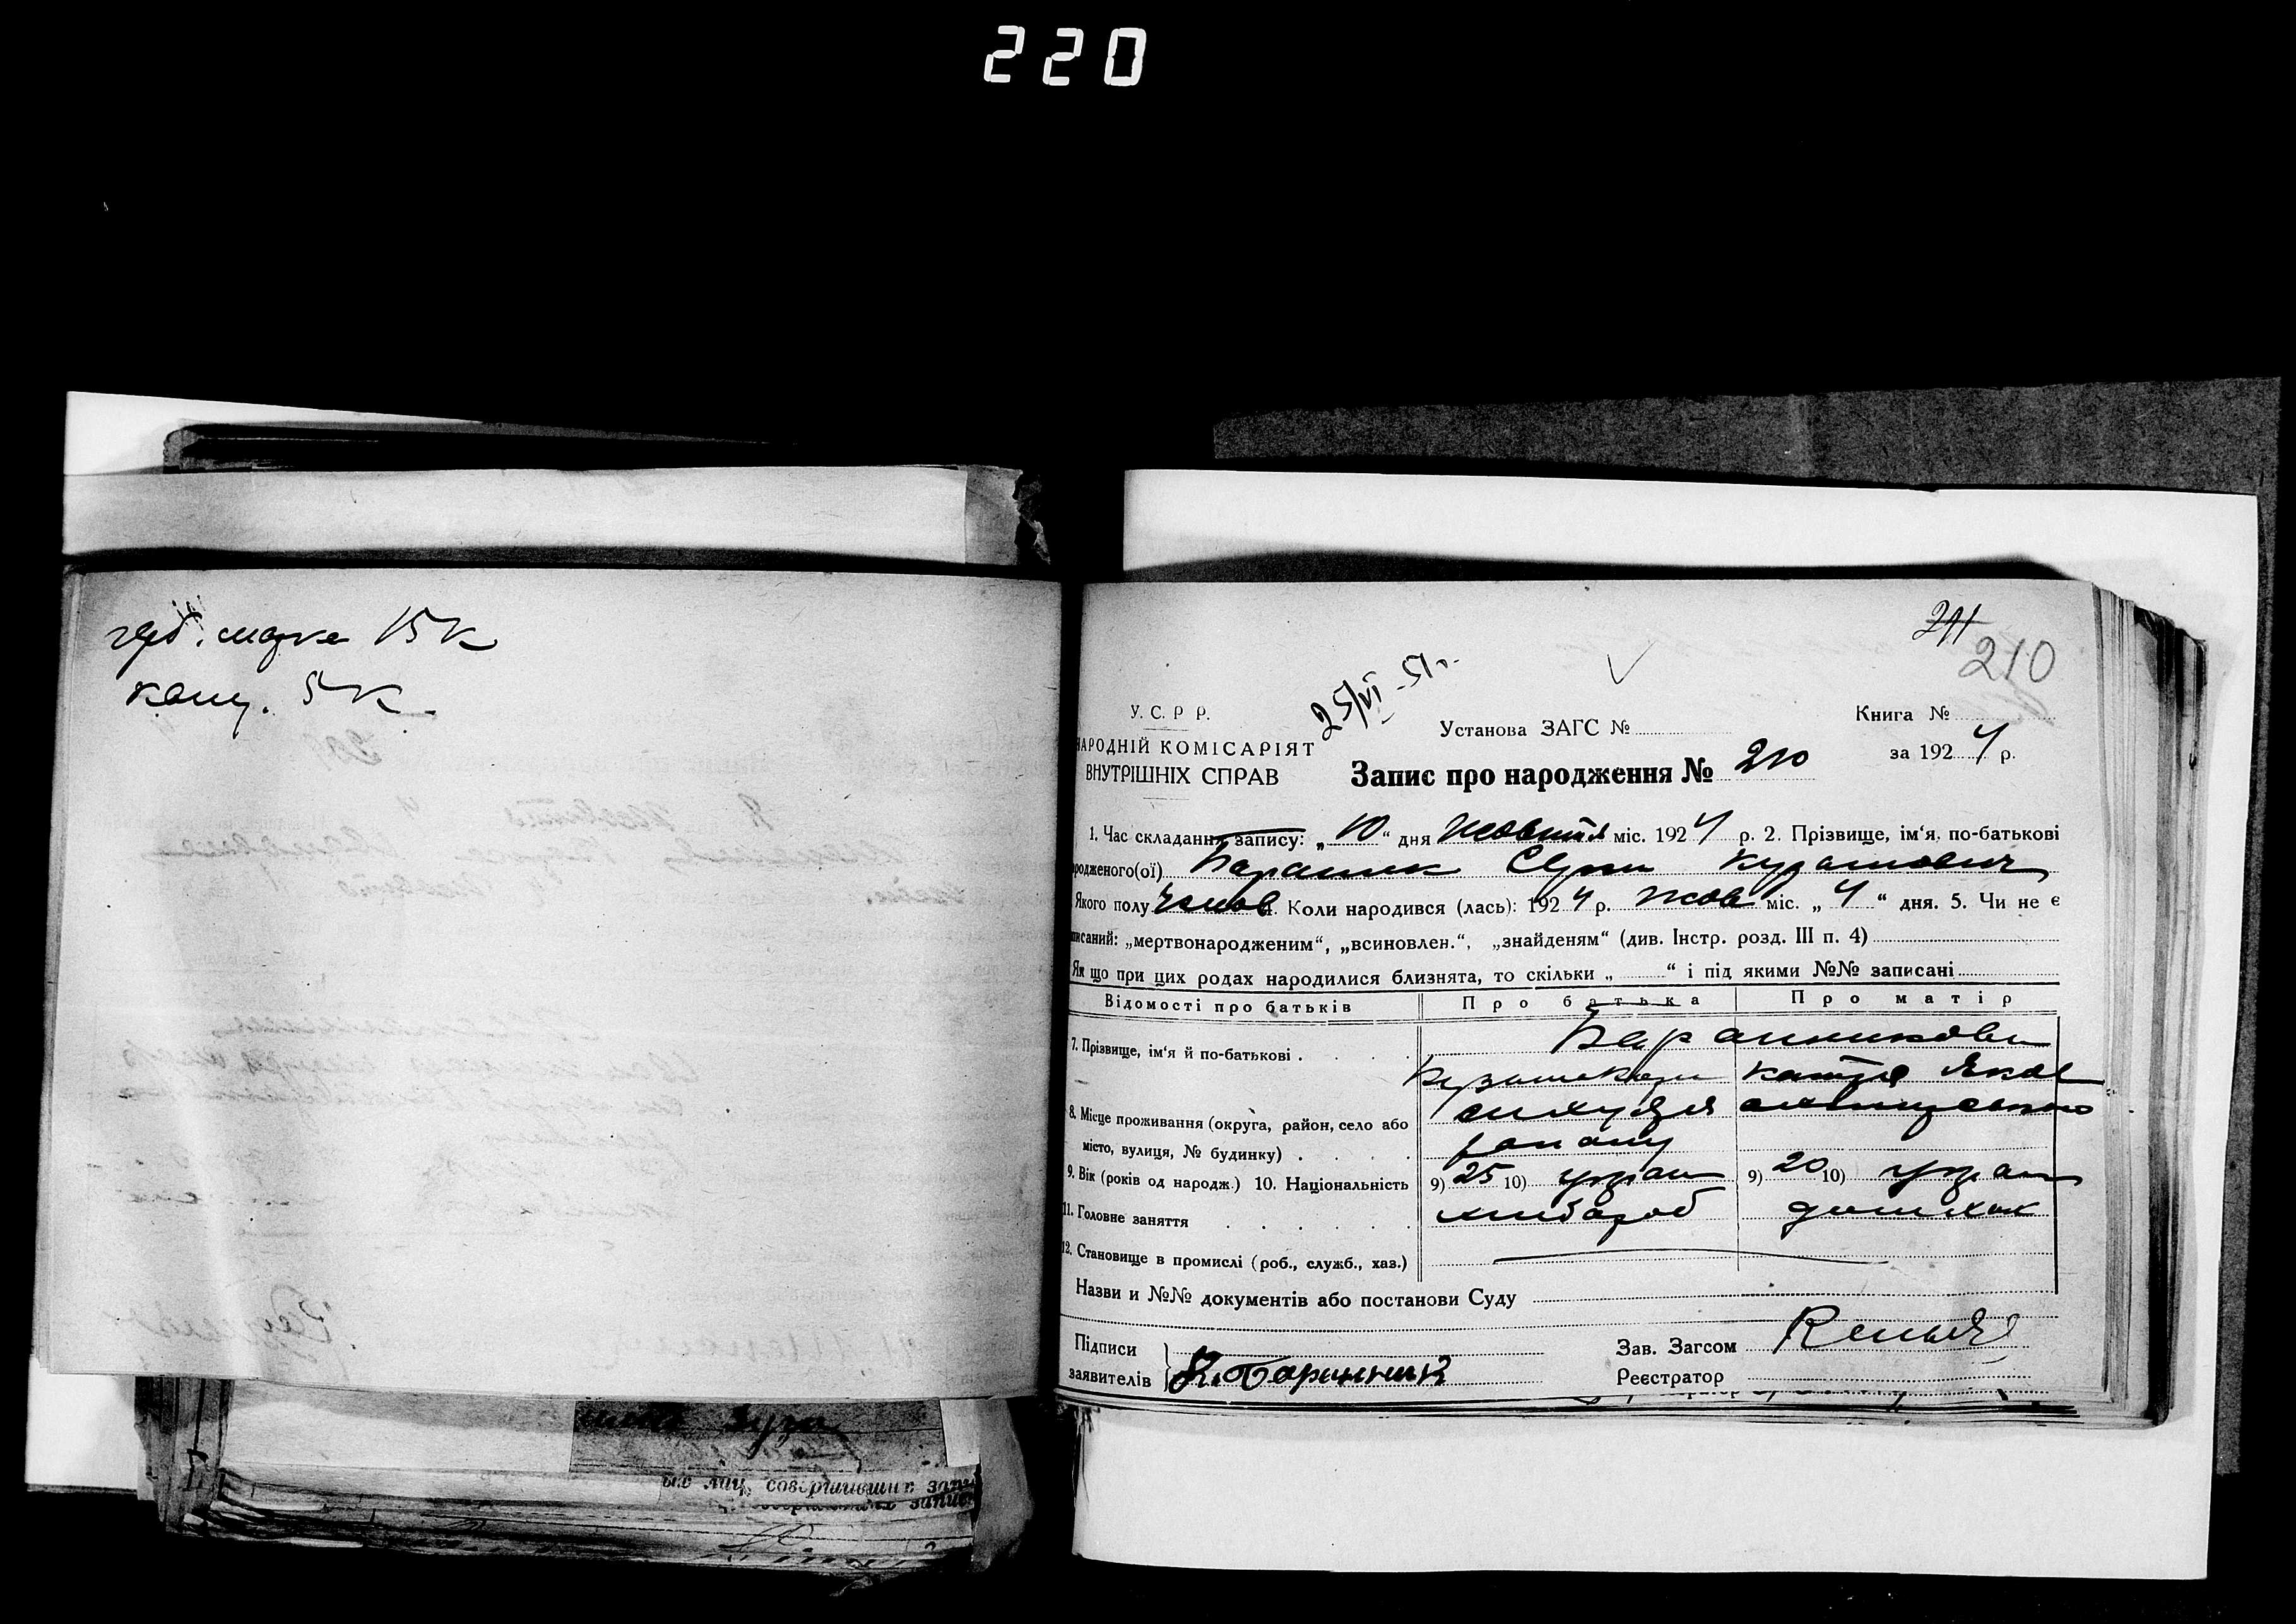 220
герб. марка 15 к
канц. 5 к.
211
210
25/VI-51 г.
У. С. Р. Р.
НАРОДНІЙ КОМІСАРІЯТ
ВНУТРІШНІХ СПРАВ
Установа ЗАГС №
Книга №
за 1924 р.
Запис про народження № 210
1. Час складання запису: „10“ дня жовтня міс. 1924 р. 2. Прізвище, ім'я, по-батькові
родженого(ої) Баранник
Якого полу чолов 4. Коли народився (лась): 1924 р. жов міс. „4“ дня. 5. Чи не є
писаний: „мертвонародженим“, „всиновлен.“, „знайденям“ (див. Інстр. розд. III п. 4)
Як що при цих родах народилися близнята, то скільки „ “ і під якими №№ записані
Відомості про батьків Про батька Про матір
7. Прізвище, ім'я й по-батькові Баранникови
Катря Яков
8. Місце проживання (округа, район, село або
місто, вулиця, № будинку)
9. Вік (років од народж.) 10. Національність 9) 25 10) украін 9) 20 10) украін
11. Головне заняття хлібороб домохаз
12. Становище в промислі (роб., служб., хаз.)
Назви и №№ документів або постанови Суду
Підписи
заявителів К. Баранник
Зав. Загсом
Реєстратор
ых лиц, совершивших запи